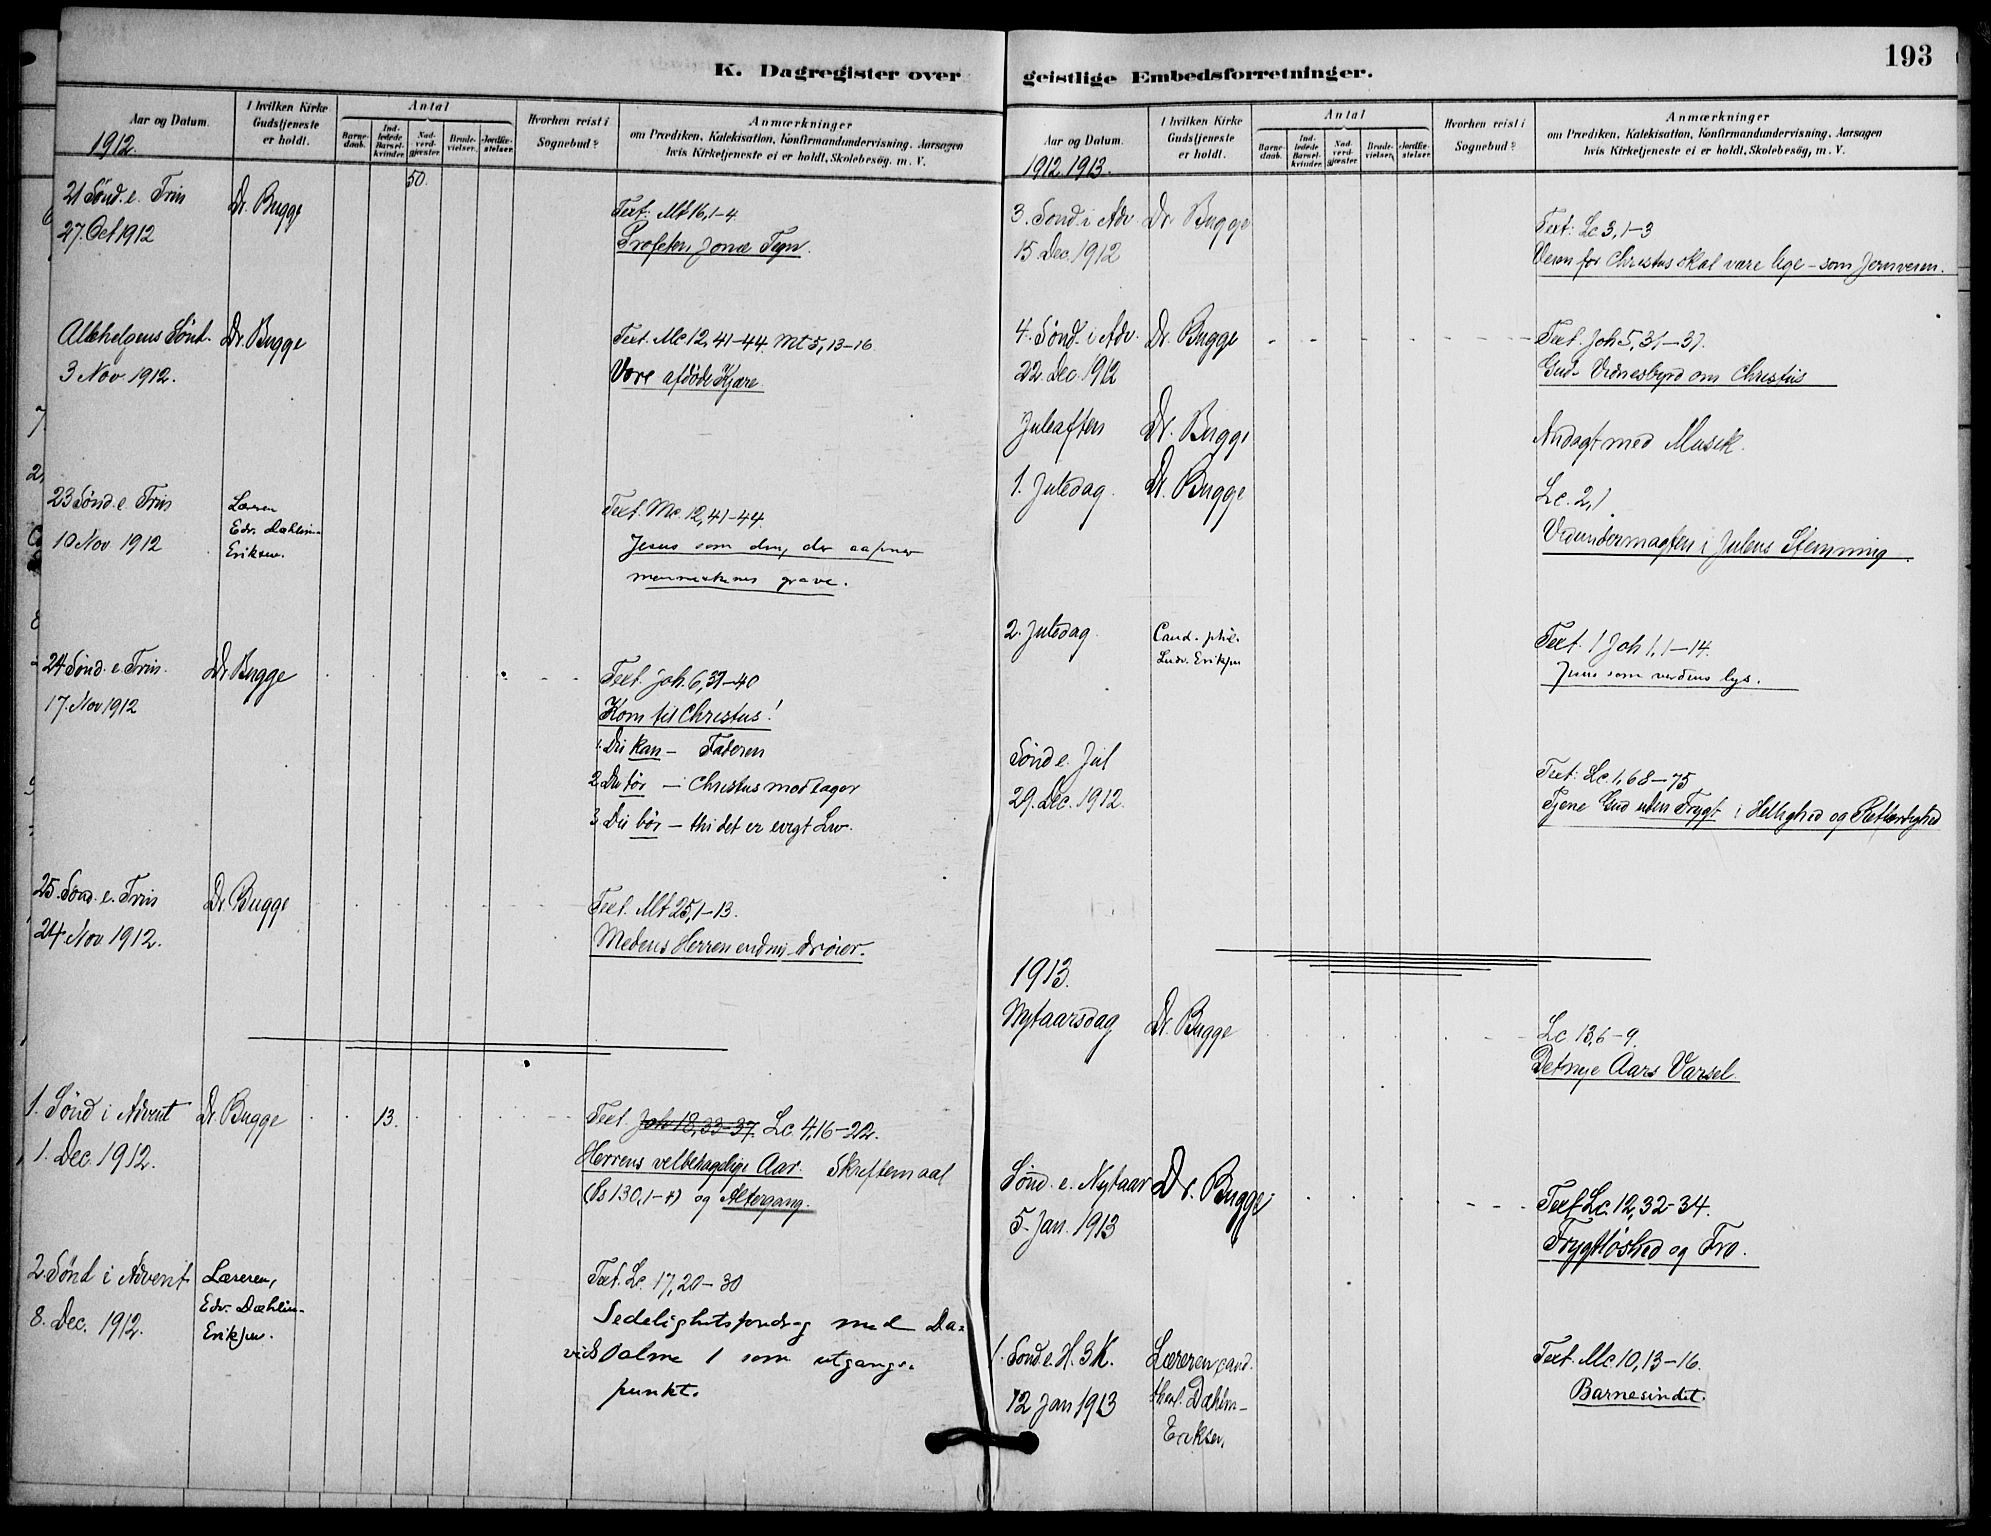 K. Dagregister over
Aar og Datum.
I hvilken Kirke Gudstjeneste er holdt.
Antal
Barne-daab.
Ind-ledede Barsel-kvinder.
Nad-verd-gjæster
Brude-vielser.
Jordfæ-stelser.
Hvorhen reist i Sognebud?
Anmærkninger
om Prædiken, Katekisation, Konfirmandundervisning, Aarsagen
hvis Kirketjeneste ei er holdt, Skolebesøg, m. V.
1912.
50.
21 Sønd. e. Trin
Dr. Bugge
27. Oct 1912
Text: Mt 16, 1-4
Profeten Jonæ Tegn.
Allehelgens Sønd.
Dr. Bugge
3 Nov. 1912.
Text. Mc 12, 41-44. Mt 5, 13-16
Vore afdøde Kjære
23 Sønd. e. Trin
10 Nov 1912
Læreren
Edv. Dæhlin-
Eriksen.
Text. Mc. 12, 41-44.
Jesus som den, der aapner
menneskenes grave.
24 Sønd. e. Trin.
Dr. Bugge
17. Nov 1912
Text. Joh. 6, 37-40
Kom til Christus!
1. Du kan - Faderen
2. Du tør - Christus modtager
3. Du bør - thi det er evigt Liv.
25. Sønd. e. Trin
Dr. Bugge
24 Nov 1912.
Text. Mt 25, 1-13.
Medens Herren endnu drøier.
1. Sønd i Advent
Dr. Bugge
13.
1. Dec. 1912.
Text. Joh 18, 33-37. Lc 4, 16-22.
Herrens velbehagelige Aar. Skriftemaal
(Ps 130, 1-4) og Altergang.
2. Sønd i Advent
8. Dec. 1912.
Læreren,
Edv. Dæhlin-
Eriksen.
Text. Lc. 17, 20-30
Sedelighetsforedrag med Da-
vids Salme 1 som utgangs-
punkt.
193
geistlige Embedsforretninger.
Aar og Datum.
I hvilken Kirke Gudstjeneste er holdt.
Antal
Barne-daab.
Ind-ledede Barsel-kvinder.
Nad-verd-gjæster
Brude-vielser.
Jordfæ-stelser.
Hvorhen reist i Sognebud?
Anmærkninger
om Prædiken, Katekisation, Konfirmandundervisning, Aarsagen
hvis Kirketjeneste ei er holdt, Skolebesøg, m. V.
1912. 1913.
3. Sønd i Adv.
Dr. Bugge
15 Dec. 1912
Text: Lc 3, 1-3
Veien for Christus skal være lige - som Jernveien.
4. Sønd. i Adv.
Dr. Bugge
22. Dec. 1912
Text. Joh 5, 31-37.
Guds Vidnesbyrd om Christus
Juleaften
Dr. Bugge
Andagt med Musik.
1. Juledag.
Dr. Bugge
Lc. 2, 1
Vidundermagten i Julens Stemning.
2. Juledag.
Cand. phil.
Ludv. Eriksen
Text. 1 Joh 1, 1-14.
Jesus som verdens lys.
Sønd e. Jul
29. Dec. 1912.
Text: Lc. 1, 68-75
Tjene Gud uden Frygt i Hellighed og Retfærdighed
1913.
Nytaarsdag
Dr. Bugge
Lc 13, 6-9.
Det nye Aars Varsel.
Sønd. e. Nytaar
Dr. Bugge
5. Jan. 1913
Text Lc. 12, 32-34.
Frygtløshed og Tro.
1. Sønd. e. H. 3 K.
12 Jan 1913
Læreren, cand.
theol. Dæhlin-
Eriksen,
Text. Mc. 10, 13-16.
Barnesindet.